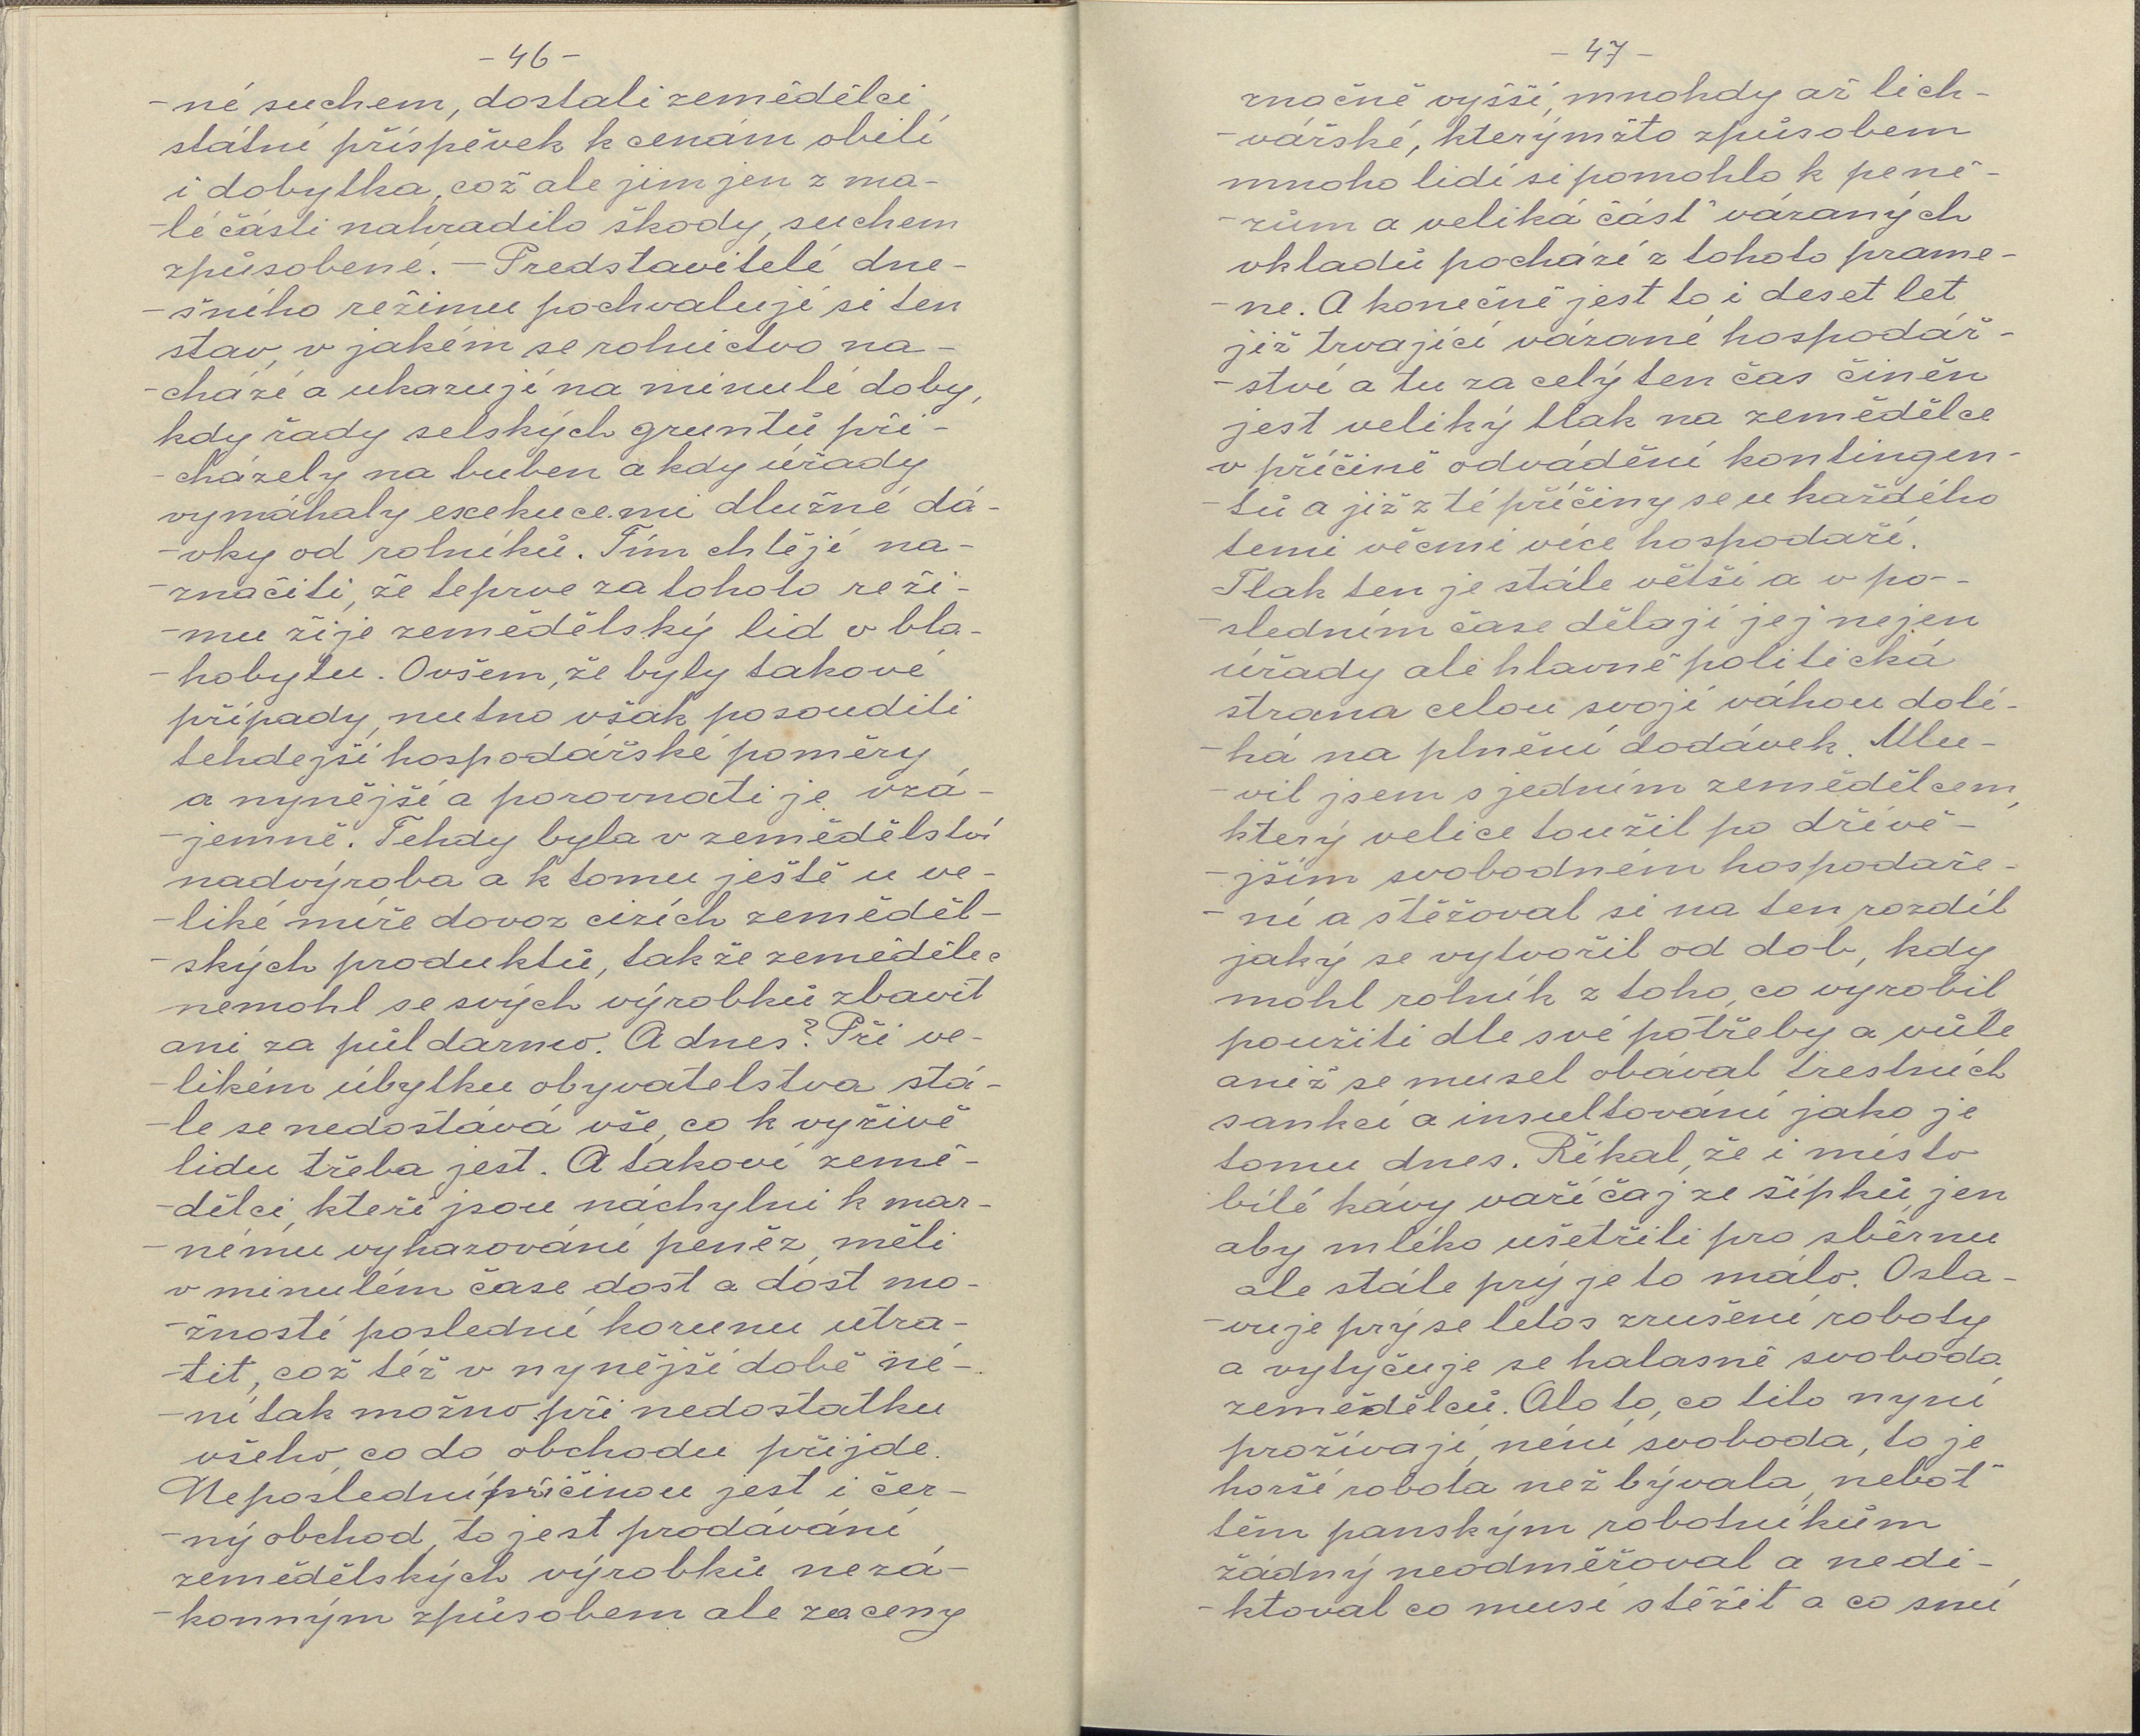 - 46 -
-né suchem, dostali zemědělci
státní příspěvek k cenám obilí
i dobytka, což ale jim jen z ma-
-lé části nahradilo škody, suchem
způsobené. - Představitelé dne-
-šního režimu pochvalují si ten
stav, v jakém se rolnictvo na-
-chází a ukazují na minulé doby,
kdy řady selských gruntů při-
-cházely na buben a kdy úřady
vymáhaly exekucemi dlužné dá-
-vky od rolníků. Tím chtějí na-
-značiti, že teprve za tohoto reži-
-mu žije zemědělský lid v bla-
-hobytu. Ovšem, že byly takové
případy, nutno však posouditi
tehdejší hospodářské poměry
a nynější a porovnati je vzá-
-jemně. Tehdy byla v zemědělství
nadvýroba a k tomu ještě u ve-
-liké míře dovoz cizích zeměděl-
-ských produktů, takže zemědělec
nemohl se svých výrobků zbavit
ani za půl darmo. A dnes? Při ve-
-likém úbytku obyvatelstva stá-
-le se nedostává vše, co k vyživě
lidu třeba jest. A takoví země-
-dělci, kteří jsou náchylni k mar-
-nému vyhazování peněz, měli
v minulém čase dost a dost mo-
-žností poslední korunu utra-
-tit, což též v nynější době né-
-ní tak možno při nedostatku
všeho, co do obchodu přijde.
Neposlední příčinou jest i čer-
-ný obchod, to jest prodávání
zemědělských výrobků nezá-
-konným způsobem ale za ceny
- 47 -
značně vyšší, mnohdy až lich-
-vářské, kterýmžto způsobem
mnoho lidí si pomohlo k pené-
-zům a veliká část váraných
vkladů pochází z tohoto prame-
-ne. A konečně jest to i deset let
již trvající vázané hospodář-
-ství a tu za celý ten čas činěn
jest veliký tlak na zemědělce
v příčině odvádění kontingen-
-tů a již z té příčiny se u každého
temi věcmi více hospodaří.
Tlak ten je stále větší a v po-
-sledním čase dělají jej nejen
úřady ale hlavně politická
strana celou svojí váhou dolé-
-há na plnění dodávek. Mlu-
-vil jsem s jedním zemědělcem,
který velice toužil po dřívě-
-jším svobodném hospodaře-
-ní a stěžoval si na ten rozdíl
jaký se vytvořil od dob, kdy
mohl rolník z toho, co vyrobil
použíti dle své potřeby a vůle
aniž se musel obávat trestních
sankcí a insultování jako je
tomu dnes. Říkal, že i místo
bílé kávy vaří čaj ze šípků, jen
aby mléko ušetřili pro sběrnu
ale stále prý je to málo. Osla-
-vuje prý se letos zrušení roboty
a vytyčuje se halasně svoboda
zemědělců. Ale to, co tito nyní
prožívají, néní svoboda, to je
horší robota než bývala, neboť
těm panským robotníkům
žádný neodměřoval a nedi-
-ktoval co musí stěžit a co smí